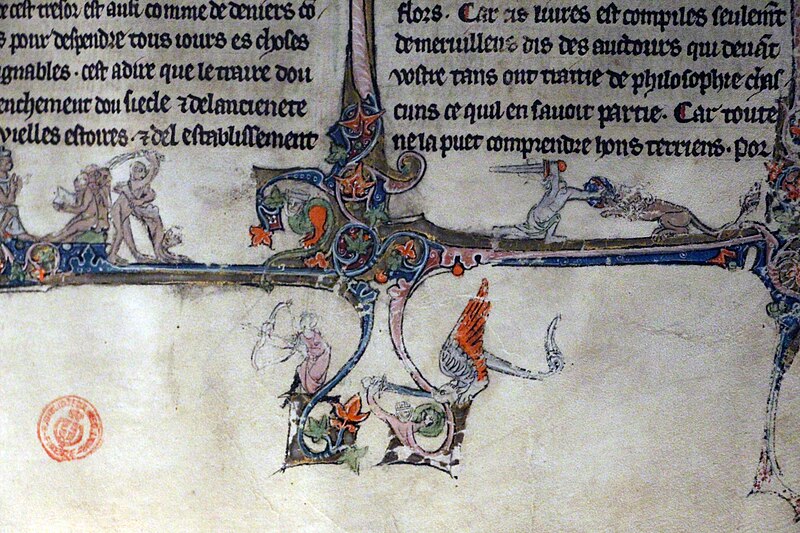 cest tresor est ausi comme de deniers co
s pour despendre tous iours es choses
ignables · cest adire que le traire dou
enchemenr dou siecle ⁊ delancienete
vielles estoires · ⁊ del establissement
flors · Car cis liures est compiles seulemt
demerueilleus dis des auctours qui deuāt
vostre tans ont traitie de philosophie chas
cuns ce quil en sauoit partie · Car toute
ne la puet comprendre hons terriens · Por